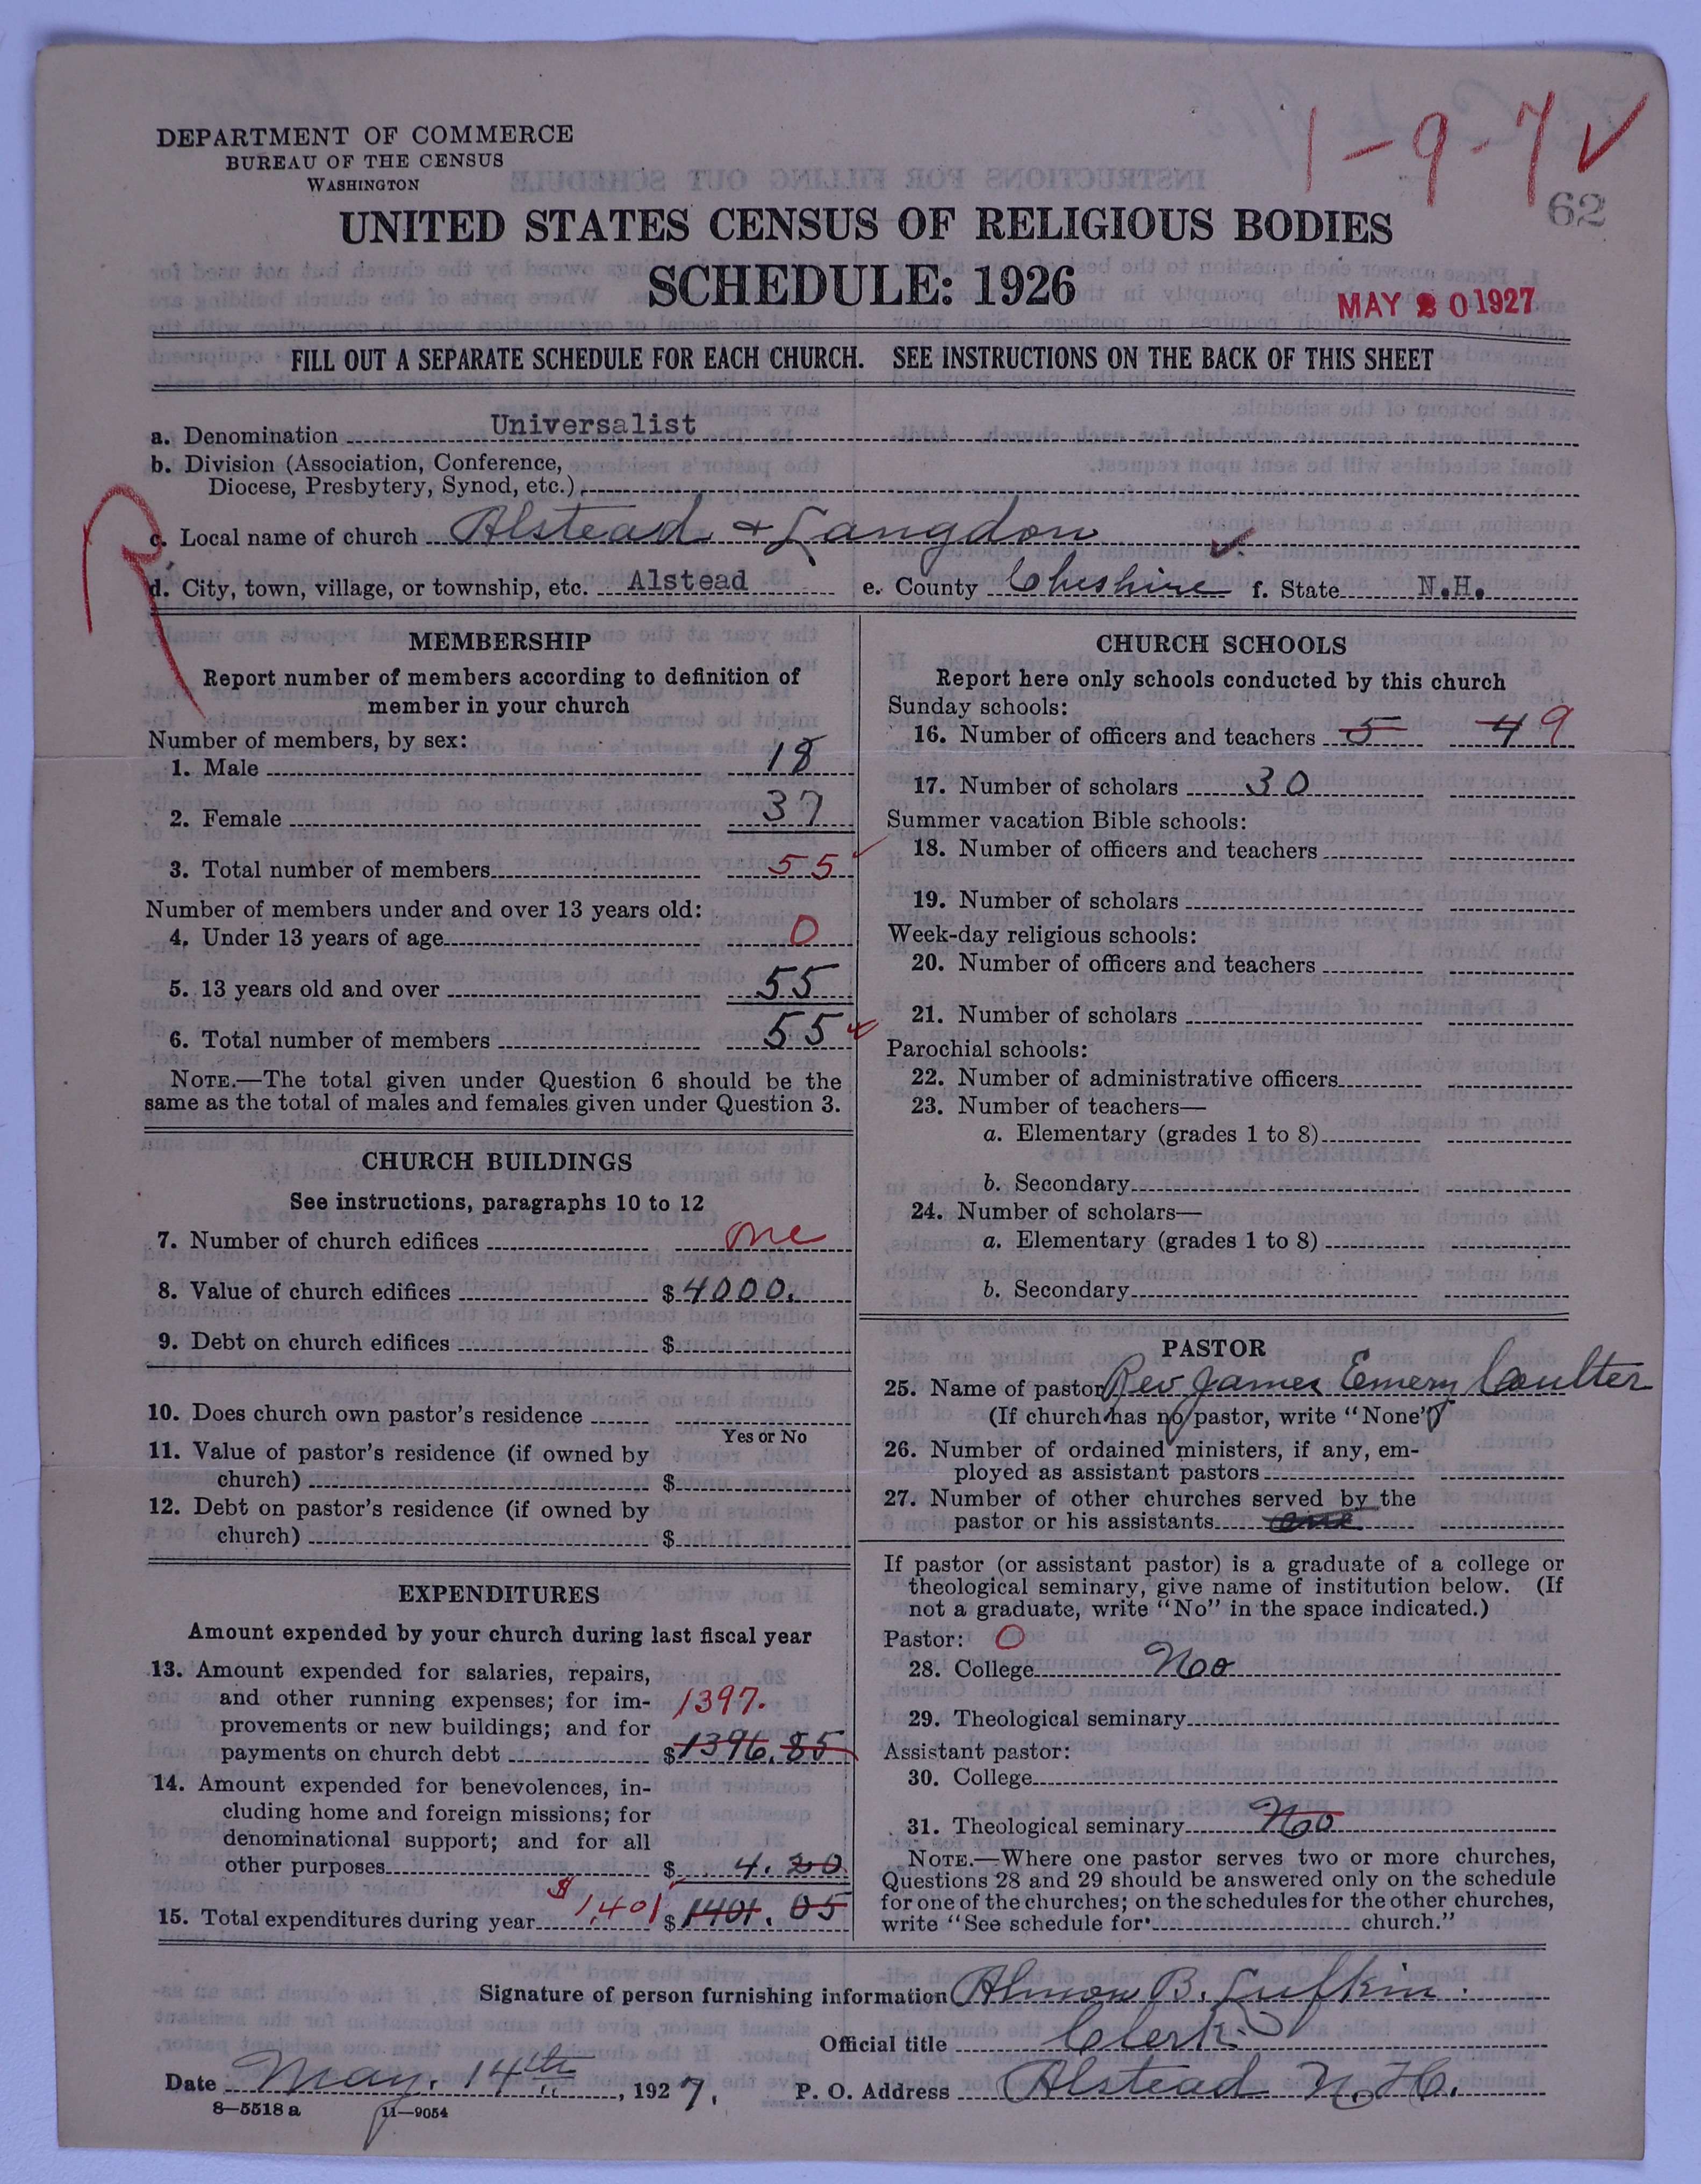 1-9-7 ✓
DEPARTMENT OF COMMERCE
BUREAU OF THE CENSUS
WASHINGTON
62
UNITED STATES CENSUS OF RELIGIOUS BODIES
SCHEDULE: 1926
MAY 20 1927
FILL OUT A SEPARATE SCHEDULE FOR EACH CHURCH. SEE INSTRUCTIONS ON THE BACK OF THIS SHEET
a. Denomination Universalist
b. Division (Association, Conference,
Diocese, Presbytery, Synod, etc.)
R
c. Local name of church Alstead & Langdon ✓
d. City, town, village, or township, etc. Alstead e. County Cheshire f. State N.H.
MEMBERSHIP
Report number of members according to definition of
member in your church
Number of members, by sex:
1. Male 18
2. Female 37
3. Total number of members 55 ✓
Number of members under and over 13 years old:
4. Under 13 years of age 0
5. 13 years old and over 55
6. Total number of members 55 ✓
NOTE.—The total given under Question 6 should be the
same as the total of males and females given under Question 3.
CHURCH BUILDINGS
See instructions, paragraphs 10 to 12
7. Number of church edifices one
8. Value of church edifices $4000.
9. Debt on church edifices $
10. Does church own pastor's residence
Yes or No
11. Value of pastor's residence (if owned by
church) $
12. Debt on pastor's residence (if owned by
church) $
EXPENDITURES
Amount expended by your church during last fiscal year
13. Amount expended for salaries, repairs,
and other running expenses; for im- 1397.
provements or new buildings; and for
payments on church debt $1396.85
14. Amount expended for benevolences, in-
cluding home and foreign missions; for
denominational support; and for all
other purposes $ 4.20
15. Total expenditures during year $1,401 $1401.05
CHURCH SCHOOLS
Report here only schools conducted by this church
Sunday schools:
16. Number of officers and teachers 5 4 9
17. Number of scholars 30
Summer vacation Bible schools:
18. Number of officers and teachers
19. Number of scholars
Week-day religious schools:
20. Number of officers and teachers
21. Number of scholars
Parochial schools:
22. Number of administrative officers
23. Number of teachers—
a. Elementary (grades 1 to 8)
b. Secondary
24. Number of scholars—
a. Elementary (grades 1 to 8)
b. Secondary
PASTOR
25. Name of pastor Rev James Emery Coulter
(If church has no pastor, write "None")
26. Number of ordained ministers, if any, em-
ployed as assistant pastors
27. Number of other churches served by the
pastor or his assistants one
If pastor (or assistant pastor) is a graduate of a college or
theological seminary, give name of institution below. (If
not a graduate, write "No" in the space indicated.)
Pastor: 0
28. College No
29. Theological seminary
Assistant pastor:
30. College
31. Theological seminary No
NOTE.—Where one pastor serves two or more churches,
Questions 28 and 29 should be answered only on the schedule
for one of the churches; on the schedules for the other churches,
write "See schedule for church."
Signature of person furnishing information Almon B. Lufkin
Official title Clerk
Date May 14th, 1927. P. O. Address Alstead N.H.
8—5518 a 11—9054